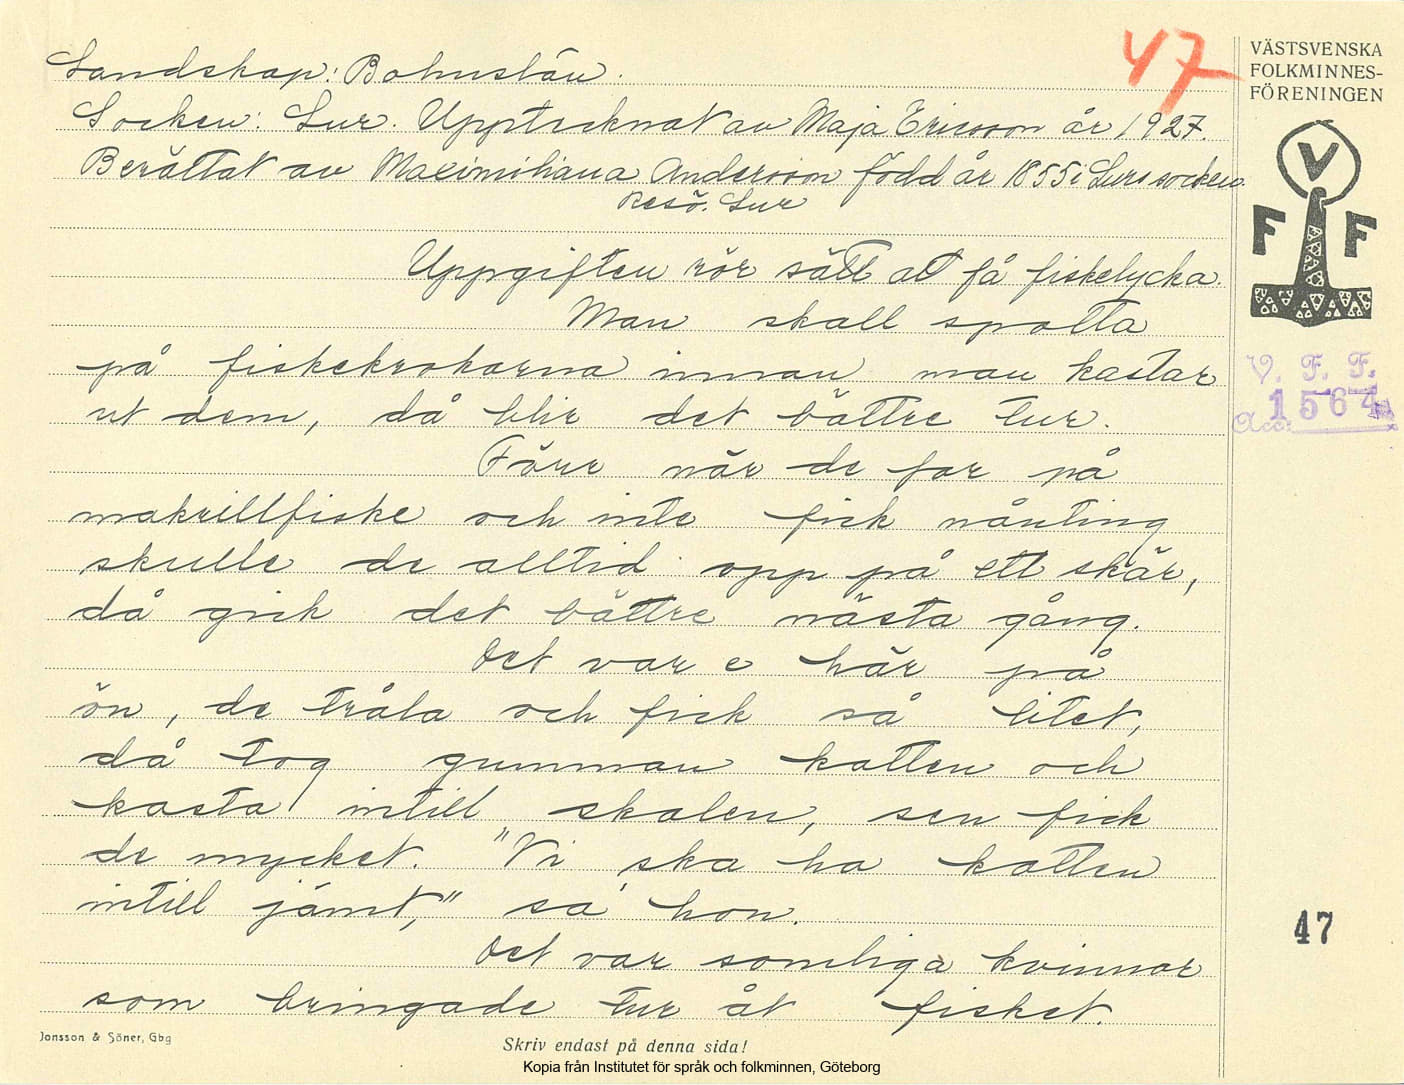 47
VÄSTSVENSKA
FOLKMINNES-
FÖRENINGEN
V
F F
V. F. F.
1564
Acc:
Landskap: Bohuslän.
Socken: Lur. Upptecknat av Maja Ericsson år 1927.
Berättat av Maximiliana Andersson född år 1855 i Lurs socken.
Resö. Lur
Uppgiften rör sätt att få fiskelycka.
Man skall spotta
på fiskekrokarna innan man kastar
ut dem, då blir det bättre tur.
Förr när de for på
makrillfiske och inte fick nånting
skulle de alltid opp på ett skär,
då gick det bättre nästa gång.
Det var e här på
ön, de tråla och fick så litet,
då tog gumman katten och
kasta intill skalen, sen fick
de mycket. "Vi ska ha katten
intill jämt," sa hon.
Det var somliga kvinnor
som bringade tur åt fisket.
47
Jonsson & Söner, Gbg
Skriv endast på denna sida!
Kopia från Institutet för språk och folkminnen, Göteborg